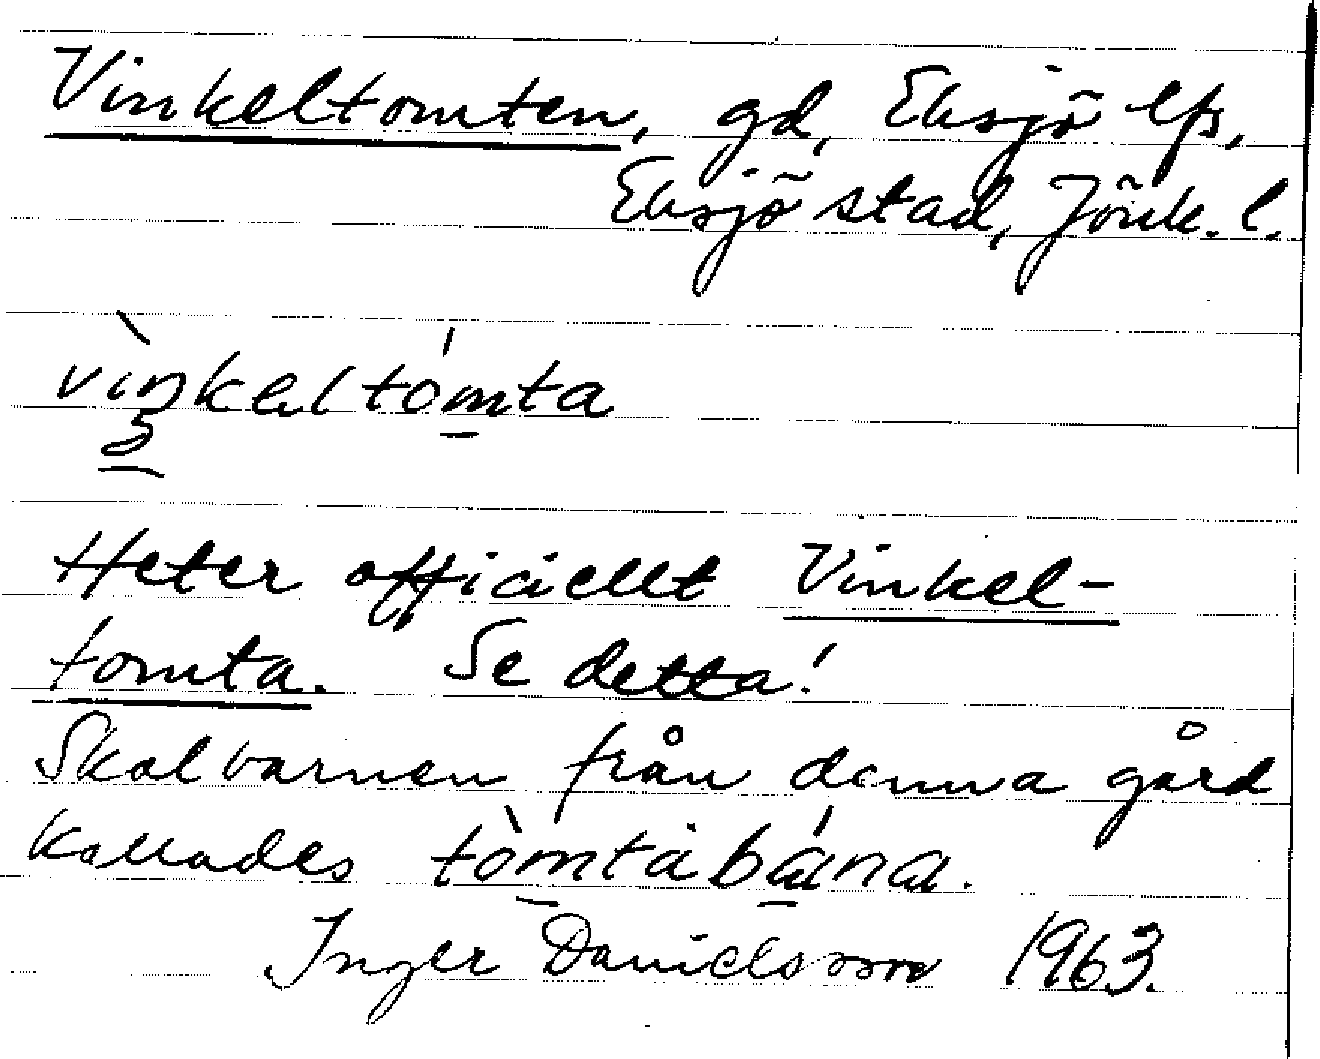 Vinkeltomten, gd, Eksjö lfs,
Eksjö stad, Jönk. l.
vìnkeltómta
Heter officiellt Vinkel-
tomta. Se detta!
Skolbarnen från denna gård
kallades tòmtabána.
Inger Danielsson 1963.